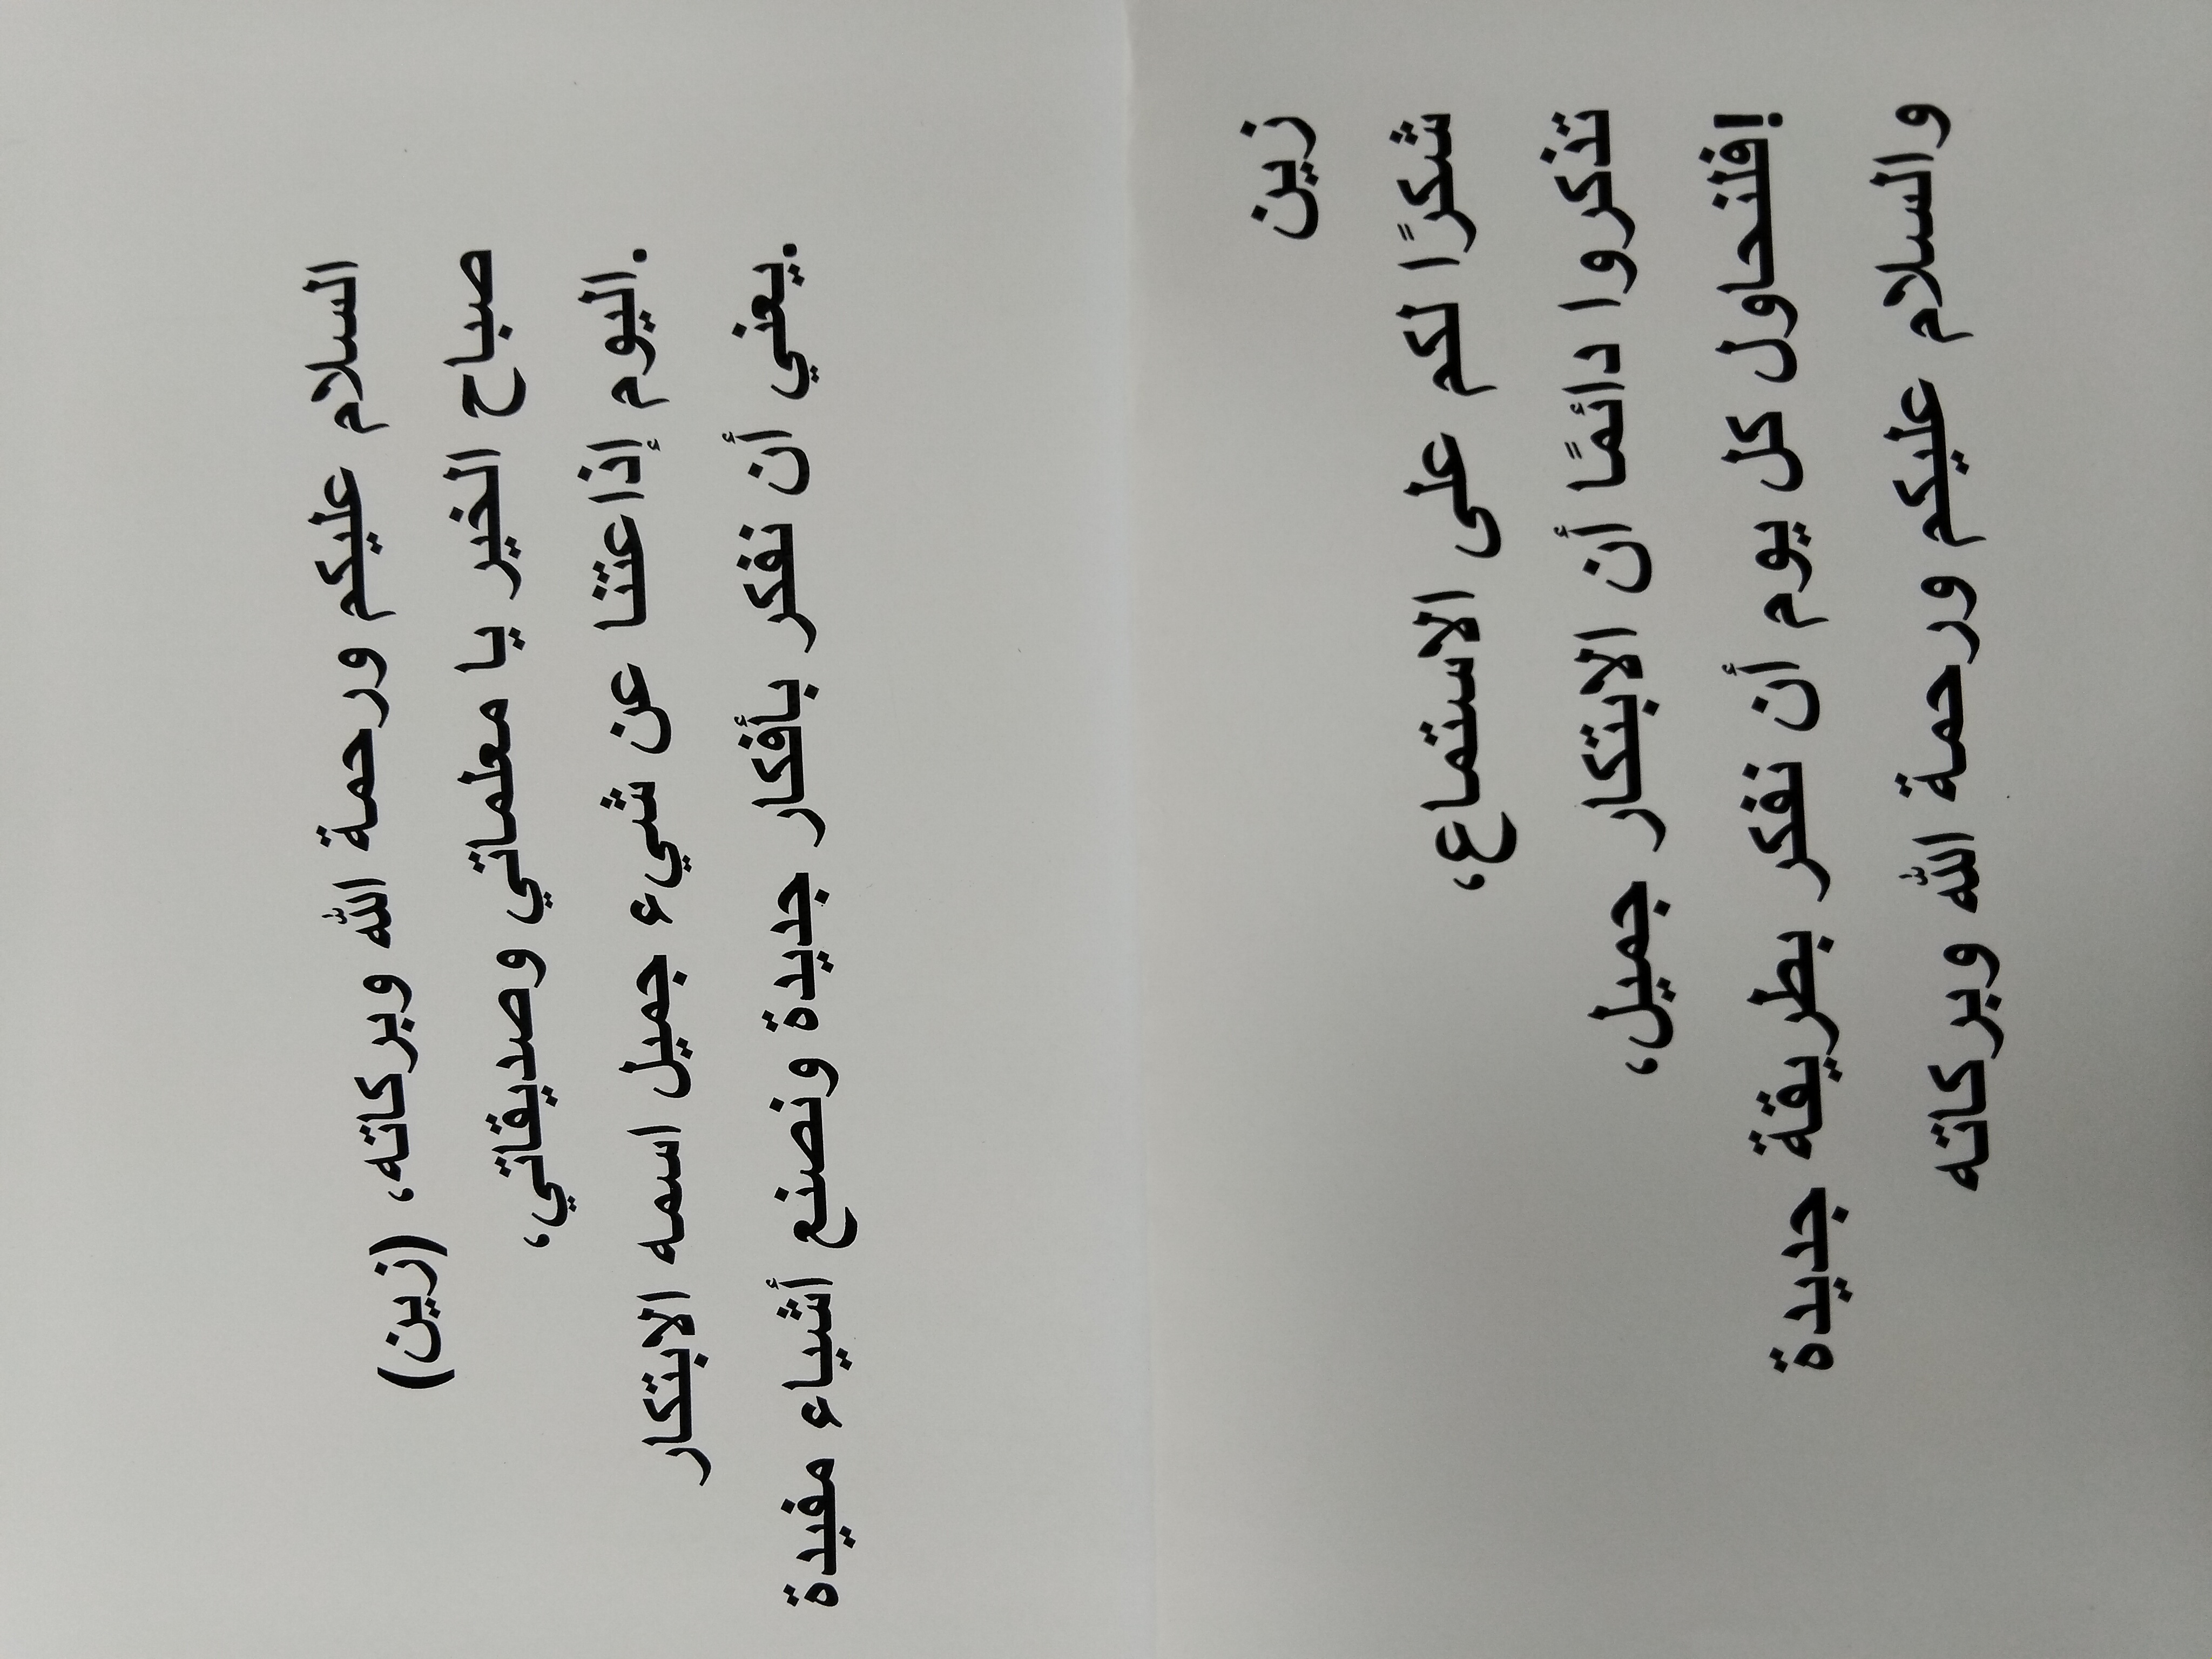 السلام عليكم ورحمة الله وبركاته، (زين)
صباح الخير يا معلماتي وصديقاتي،
.اليوم إذاعتنا عن شيء جميل اسمه الابتكار
.يعني أن نفكر بأفكار جديدة ونصنع أشياء مفيدة
زين
شكرًا لكم على الاستماع،
تذكروا دائمًا أن الابتكار جميل،
!فلنحاول كل يوم أن نفكر بطريقة جديدة
والسلام عليكم ورحمة الله وبركاته